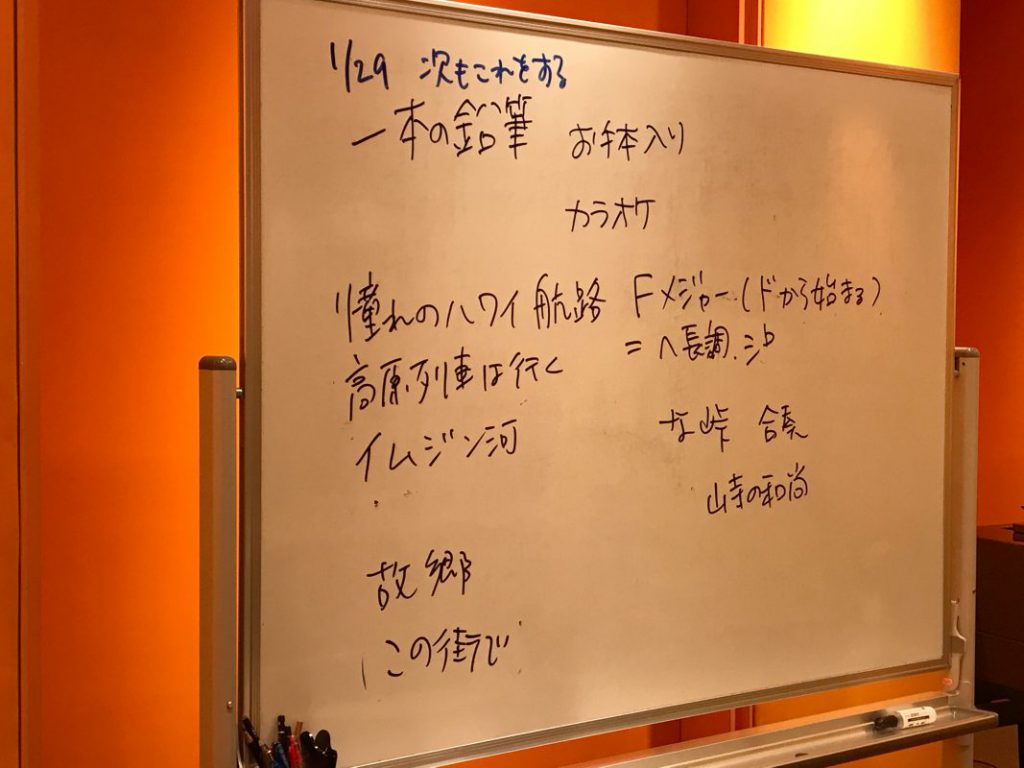 1/29 次もこれをする
一本の鉛筆 お手本入り
カラオケ
憧れのハワイ航路 Fメジャー(ドから始まる)
高原列車は行く =ヘ長調
イムジン河
峠 合奏
山寺の和尚
故郷
この街で